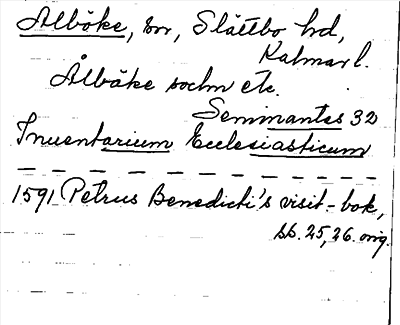 Alböke, sn, Slättbo hd,
Kalmar l.
Ålbäke sochn etc.
Seminantes 32
Inuentarium Ecclesiasticum
1591 Petrus Benedicti's visit-bok,
ss. 25, 26. orig.